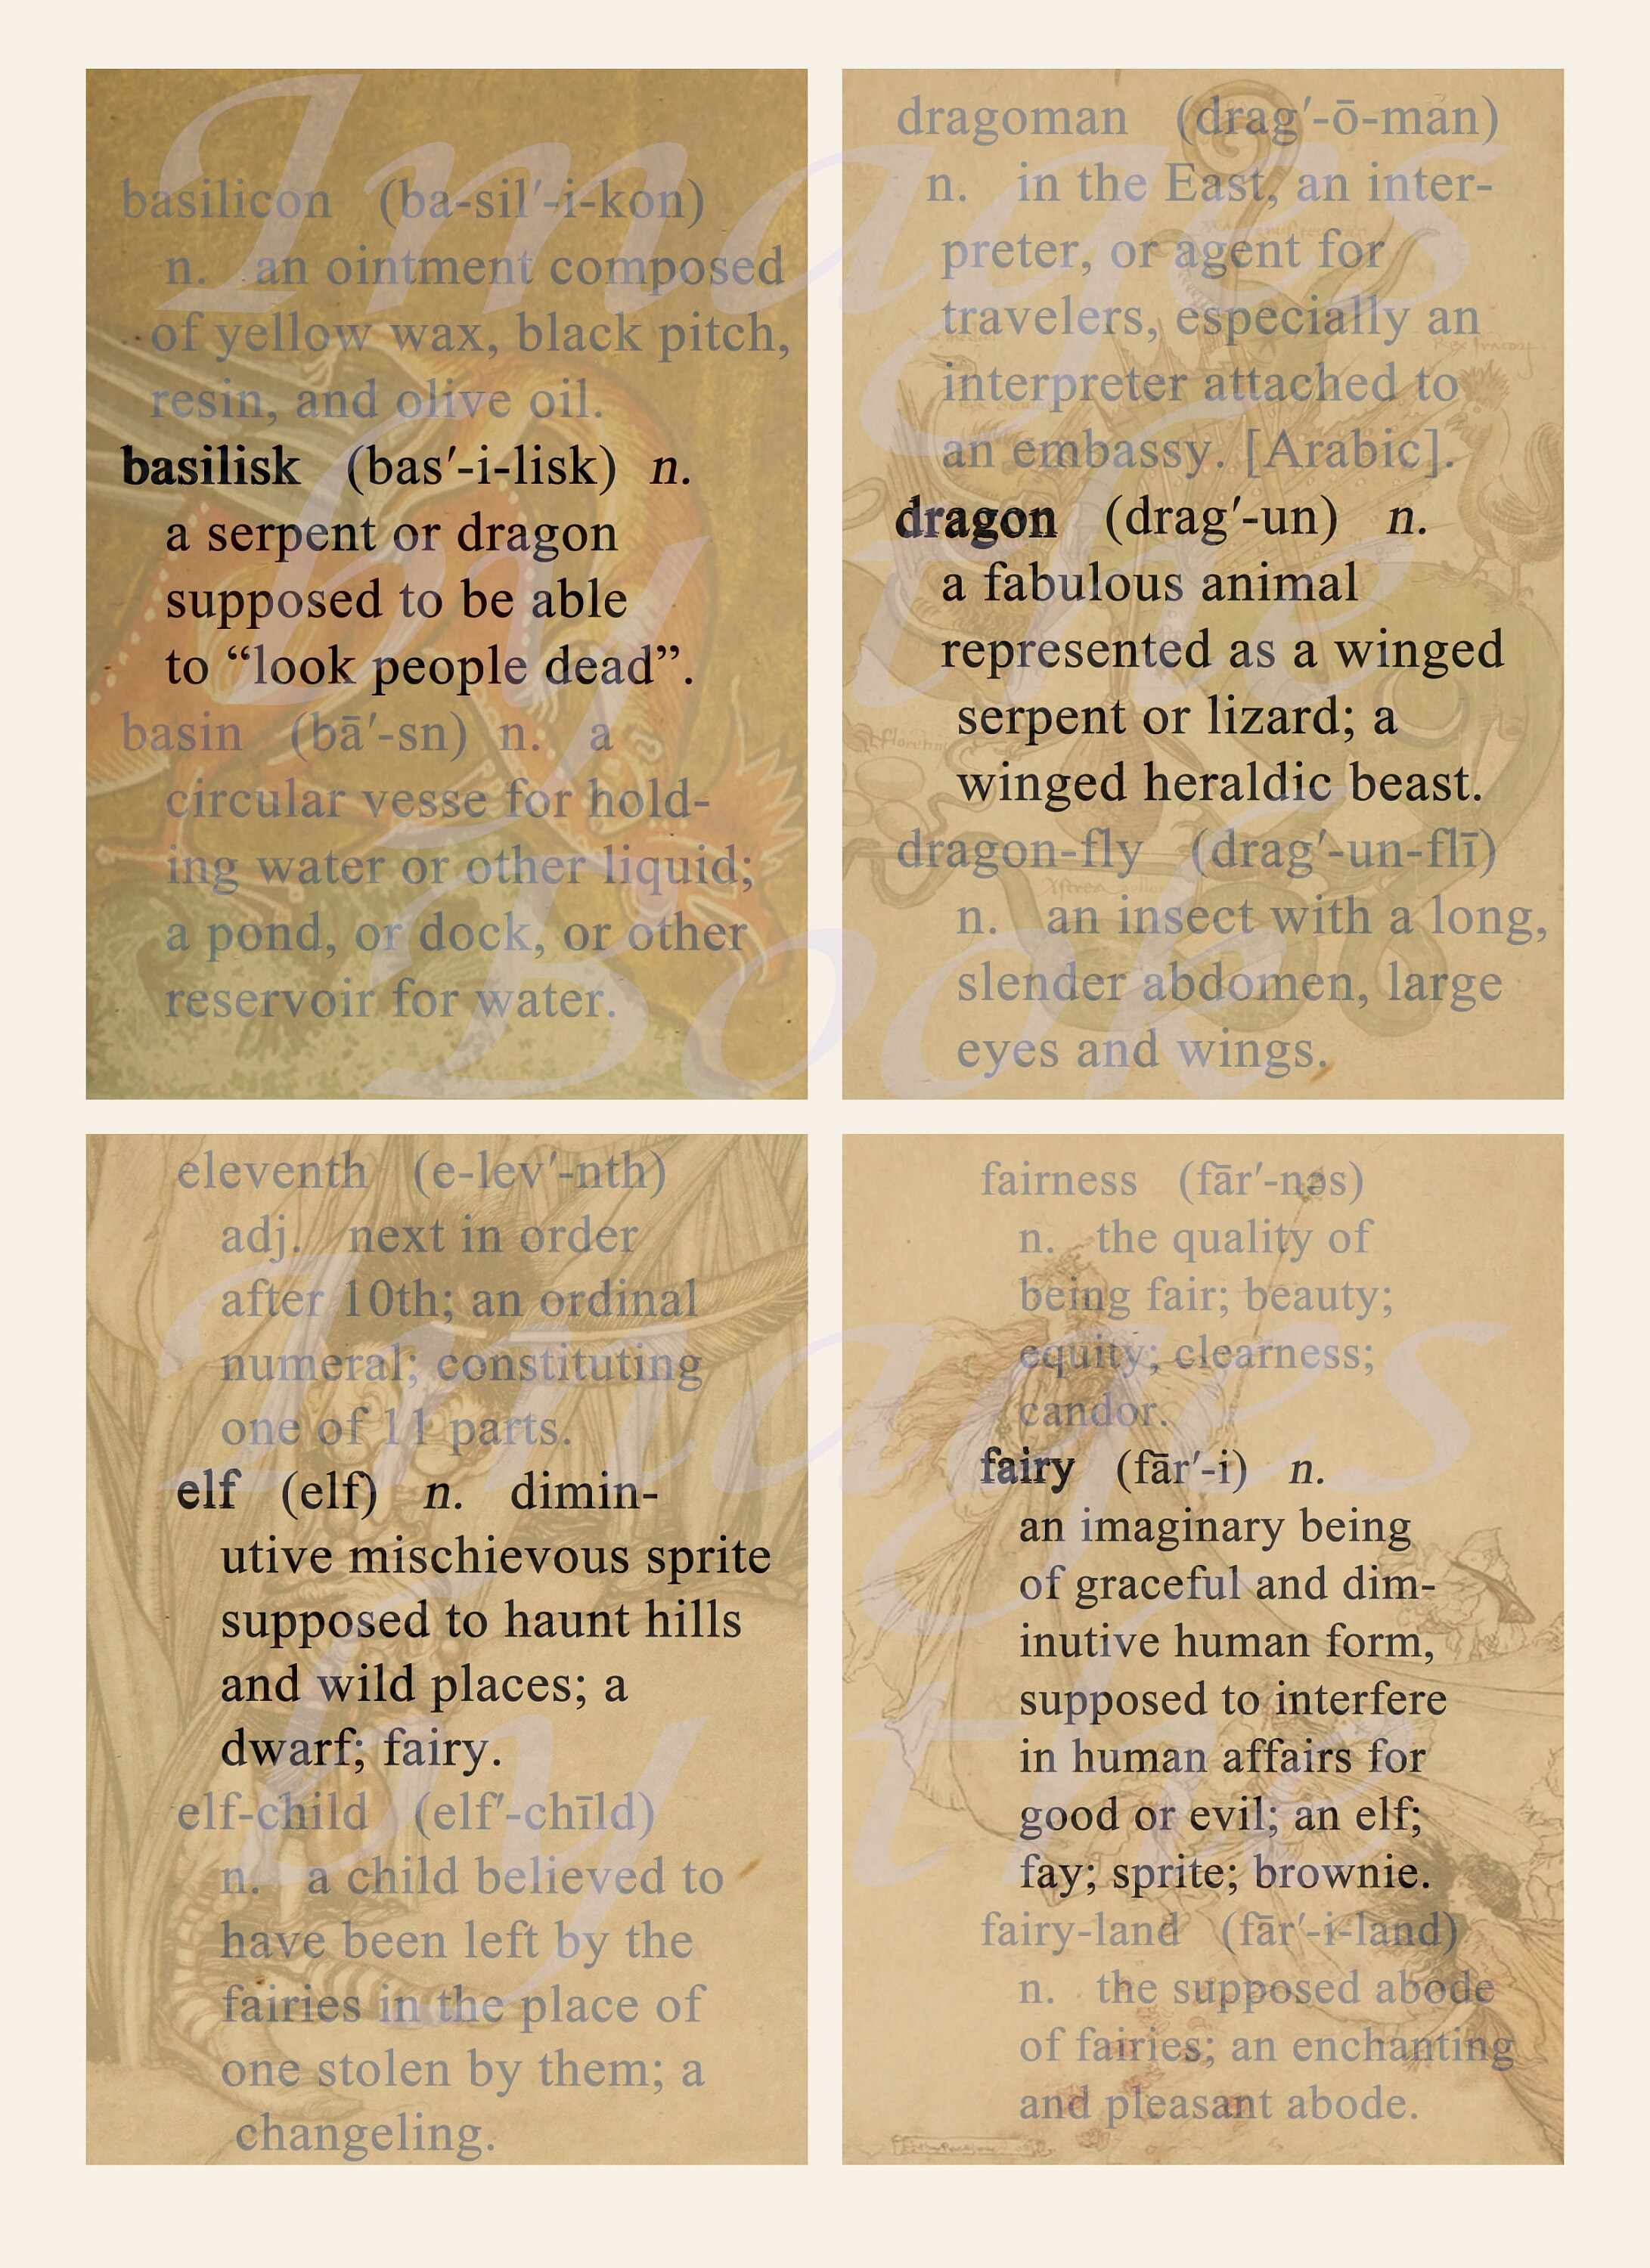 basilicon (ba-sil′-i-kon)
n. an ointment composed
of yellow wax, black pitch,
resin, and olive oil.
basilisk (bas′-i-lisk) n.
a serpent or dragon
supposed to be able
to “look people dead”.
basin (bā′-sn) n. a
circular vesse for hold-
ing water or other liquid;
a pond, or dock, or other
reservoir for water.
dragoman (drag′-ō-man)
n. in the East, an inter-
preter, or agent for
travelers, especially an
interpreter attached to
an embassy. [Arabic].
dragon (drag′-un) n.
a fabulous animal
represented as a winged
serpent or lizard; a
winged heraldic beast.
dragon-fly (drag′-un-flī)
n. an insect with a long,
slender abdomen, large
eyes and wings.
Images
by the
Book
eleventh (e-lev′-nth)
adj. next in order
after 10th; an ordinal
numeral; constituting
one of 11 parts.
elf (elf) n. dimin-
utive mischievous sprite
supposed to haunt hills
and wild places; a
dwarf; fairy.
elf-child (elf′-chīld)
n. a child believed to
have been left by the
fairies in the place of
one stolen by them; a
changeling.
fairness (fār′-nəs)
n. the quality of
being fair; beauty;
equity; clearness;
candor.
fairy (fār′-i) n.
an imaginary being
of graceful and dim-
inutive human form,
supposed to interfere
in human affairs for
good or evil; an elf;
fay; sprite; brownie.
fairy-land (fār′-i-land)
n. the supposed abode
of fairies; an enchanting
and pleasant abode.
Images
by the